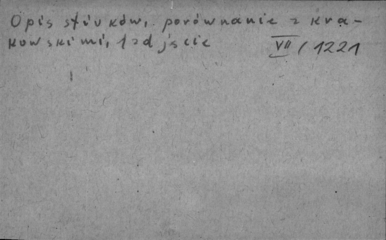 Opis stiuków, porównanie z kra-
kowskimi, 1 zdjęcie VII / 1221